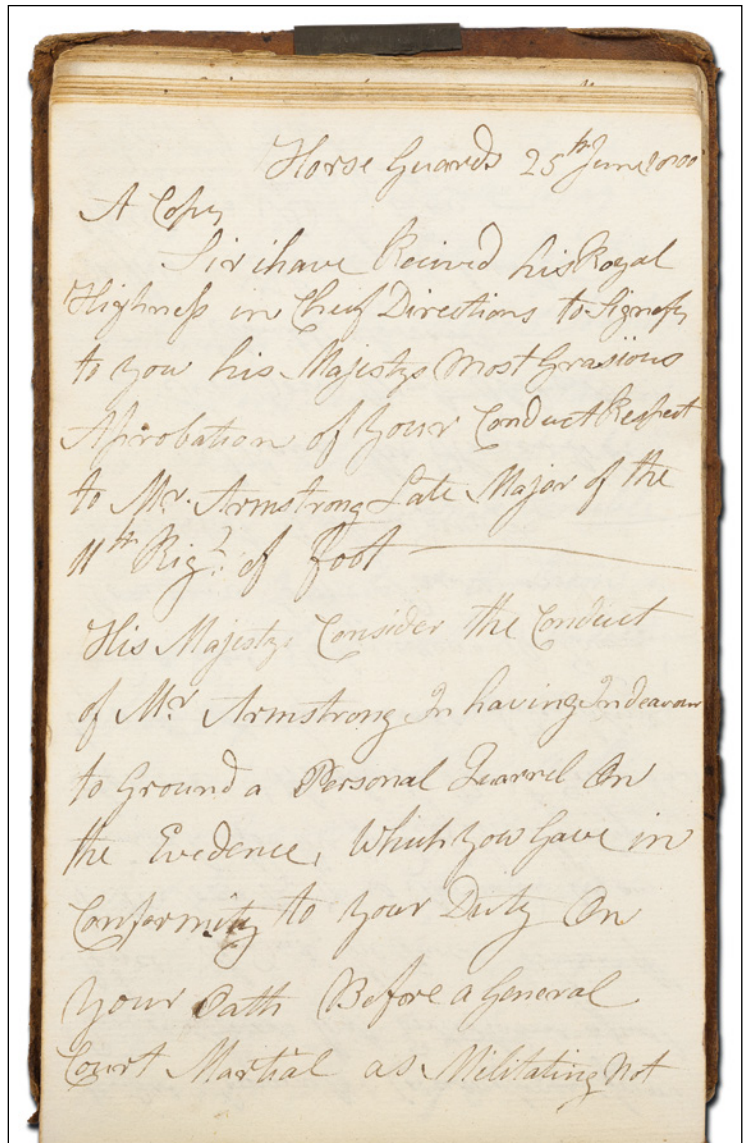 Horse Guards 25th June 1800
A Copy
Sir i have Recived his Royal
Highness in Cheif Directions to Signefy
to you his Majestys Most Grasious
Aprobation of your Conduct Respect
to Mr. Armstrong Late Major of the
11th Rigt. of Foot
His Majesty Consider the Conduct
of Mr Armstrong In having Indeavour
to Ground a Personal Quarrel On
the Evedence, Which you Gave in
Conformity to your Duty On
your Oath Before a General
Court Martial as Militating Not